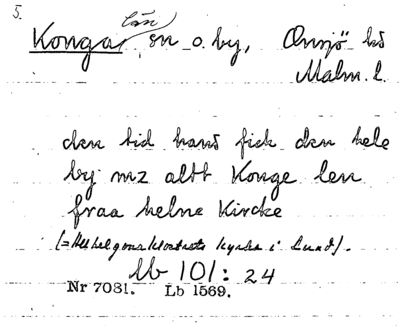 5.
län
Konga, sn o. by, Onsjö hd
Malm. l.
den tid hand fick den hele
by mz altt Konge len
fraa helne Kircke
(= Allhelgonaklostrets kyrka i Lund).
Mb 101: 24
Nr 7081. Lb 1569.